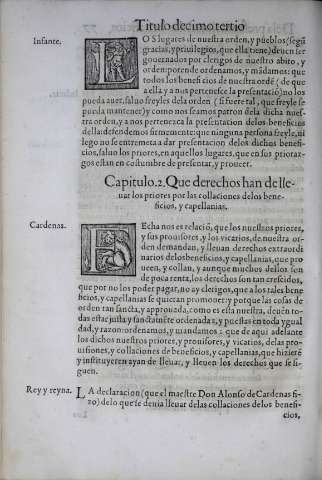 Titulo decimo tertio
Infante.
LOS lugares de nuestra orden, y pueblos (segũ
gracias, y priuilegios, que ella tiene) deuen ser
gouernados por clerigos de nuestro abito, y
orden: porende ordenamos, y mãdamos: que
todos los beneficios de nuestra ordẽ (de que
a ella y a nos pertenesce la presentaciõ) no los
pueda auer, saluo freyles dela orden (si fuere tal, que freyle se
pueda mantener) y como nos seamos patron dela dicha nues-
tra orden, y a nos pertenezca la presentacion delos beneficios
della: defendemos firmemente: que ninguna persona freyle, ni
lego no se entremeta a dar presentacion delos dichos benefi-
cios, saluo los priores, en aquellos lugares, que en sus prioraz-
gos estan en costumbre de presentar, y proueer.
Capitulo.2. Que derechos han de lle-
uar los priores por las collaciones delos bene-
ficios, y capellanias.
Cardenas.
FEcha nos es relaciõ, que los nuestros priores,
y sus prouisores, y los vicarios, de nuestra or-
den demandan, y lleuan derechos extraordi
narios delos beneficios, y capellanias, que pro
ueen, y collan, y aunque muchos dellos son
de poca renta, los derechos son tan crescidos,
que por no los poder pagar, no ay clerigos, que a los tales bene
ficios, y capellanias se quieran promouer: y porque las cosas de
orden tan sancta, y approuada, como es esta nuestra, deuẽ to-
das estar justa, y sanctamẽte ordenadas, y puestas en toda ygual
dad, y razon: ordenamos, y mandamos: que de aqui adelante
los dichos nuestros priores, y prouisores, y vicarios, delas pro-
uisiones, y collaciones de beneficios, y capellanias, que hiziere
y instituyeren ayan de lleuar, y lleuen los derechos que se si-
guen.
Rey y reyna.
LA declaracion (que el maestre Don Alonso de Cardenas fi-
zo) delo que se deuia lleuar delas collaciones delos benefi-
cios,